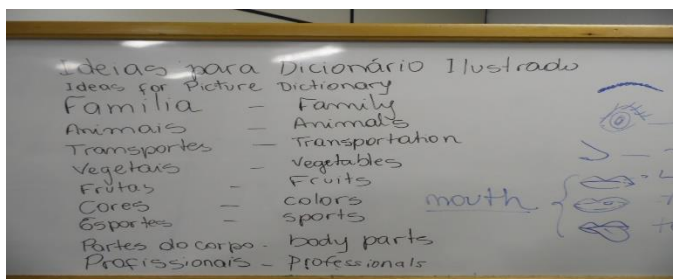 Ideias para Dicionário Ilustrado
Ideas for Picture Dictionary
Família - Family
Animais - Animals
Transportes - Transportation
Vegetais - Vegetables
Frutas - Fruits
Cores - colors
Esportes - sports
Partes do corpo - body parts
Profissionais - Professionals
mouth